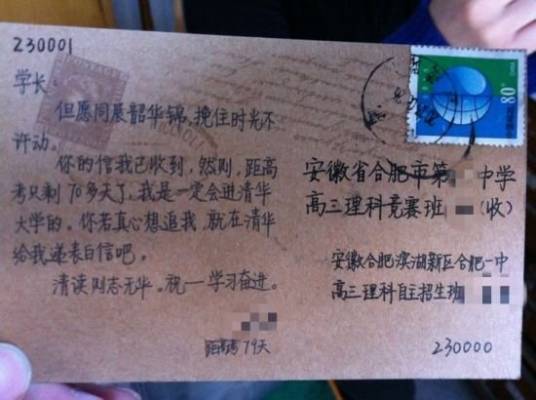 230001
学长:
但愿同展韶华锦，挽住时光不
许动。
你的信我已收到，然则，距高
考只剩70多天了，我是一定会进清华
大学的。你若真心想追我，就在清华
给我递表白信吧。
清淡则志无华。祝一学习奋进。
79天
80
安徽省合肥市第 中学
高三理科竞赛班 (收)
安徽合肥滨湖新区合肥一中
高三理科自主招生班
230000